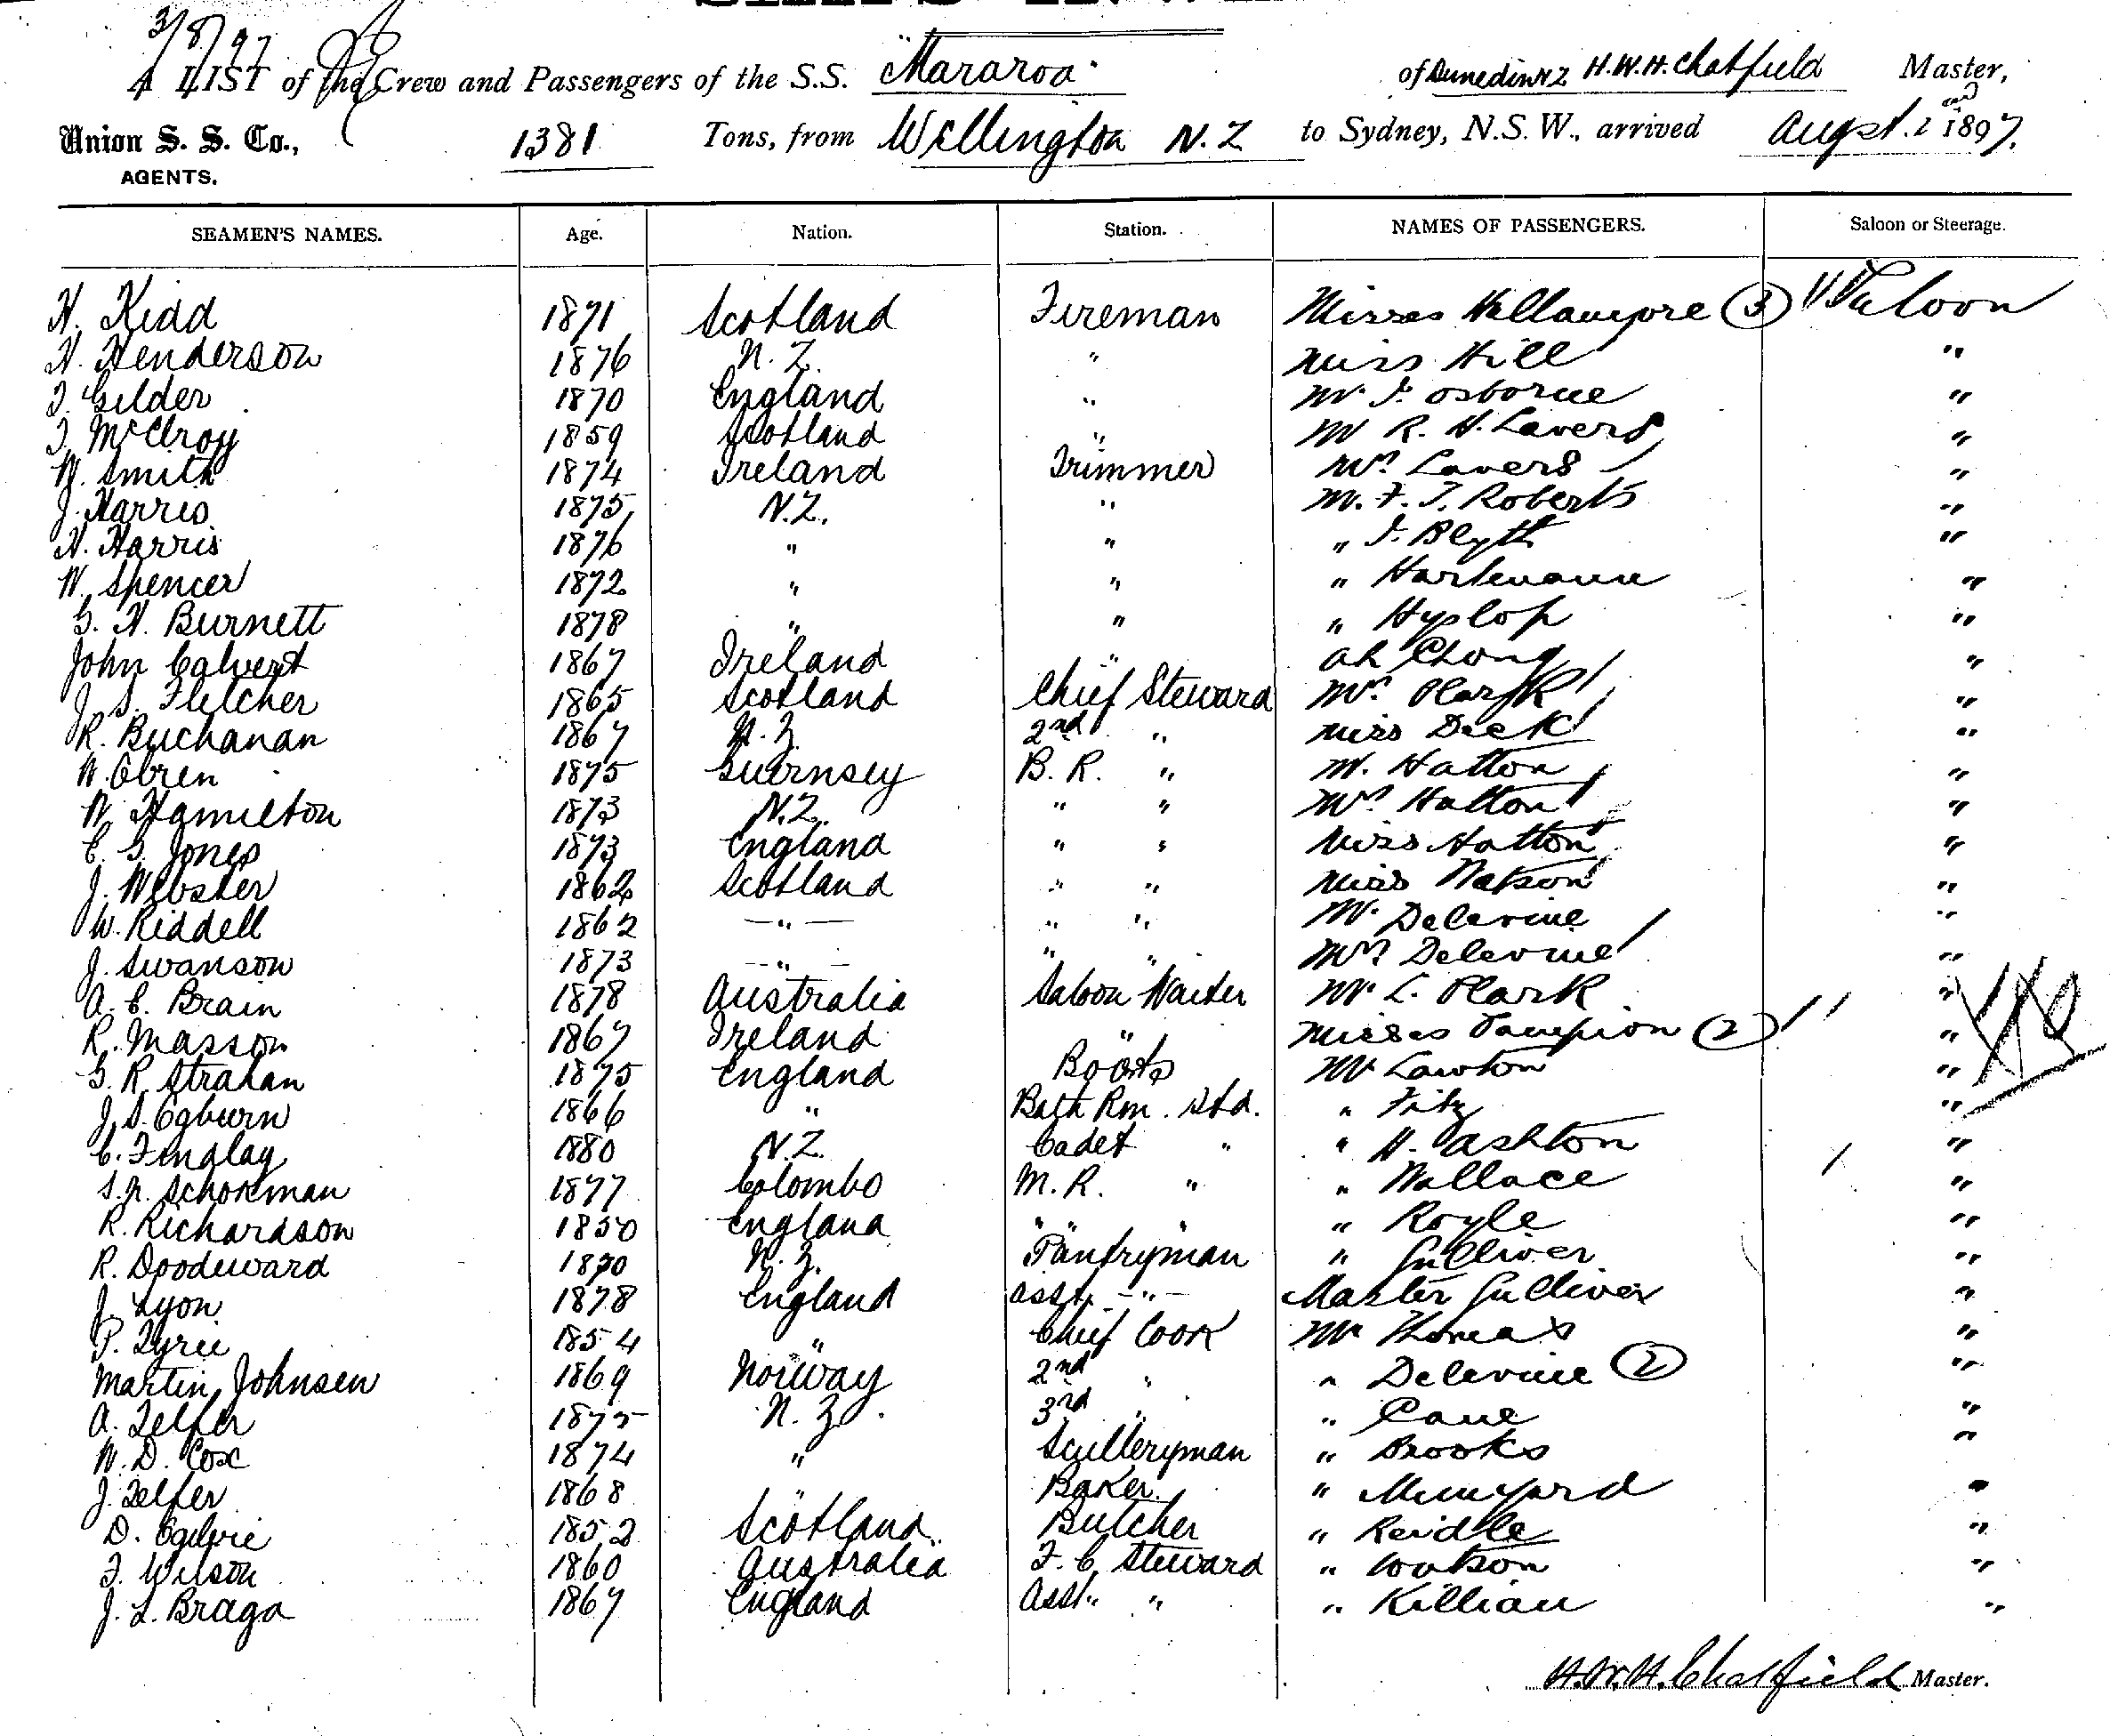 3/8/97
A LIST of the Crew and Passengers of the S.S. Mararoa of Dunedin NZ H.W.H. Chatfield Master,
Union S. S. Co., AGENTS. 1381 Tons, from Wellington N.Z to Sydney, N.S.W., arrived Augst. 2nd 1897.
SEAMEN'S NAMES. Age. Nation. Station. NAMES OF PASSENGERS. Saloon or Steerage.
H. Kidd 1871 Scotland Fireman Misses (3) Saloon
H. Henderson 1876 N.Z. " Miss Hill "
T. Gilder 1870 England " Mr J. Osborne "
J. McElroy 1859 Scotland " Mr R. H. Lavers "
W. Smith 1874 Ireland Trimmer Mrs Lavers "
J. Harris 1875 N.Z. " Mr. F. T. Roberts "
H. Harris 1876 " " " J. Blyth "
W. Spencer 1872 " " " Hartmann "
G. H. Burnett 1878 " " " Hyslop "
John Calvert 1867 Ireland " Ah Chong "
J. S. Fletcher 1865 Scotland Chief Steward Mrs Clark "
R. Buchanan 1867 N.Z. 2nd " Miss Deck "
W. Obren 1875 Guernsey B. R. " Mr. Hatton "
W. Hamilton 1873 N.Z. " " Mrs Hatton "
C. G. Jones 1873 England " " Miss Hatton "
J. Webster 1862 Scotland " " Miss Watson "
W. Riddell 1862 — " — " " Mr. Delevine "
J. Swanson 1873 — " — " " Mrs Delevine "
A. C. Brain 1878 Australia Saloon Waiter Mr L. Clark "
R. Masson 1867 Ireland " Misses Tampion (2) "
G. R. Strahan 1875 England Boots Mr Lawton "
J. S. Ogburn 1866 " Bath Rm. Std. " Fitz "
C. Findlay 1880 N.Z. Cadet " " H. Ashton "
Schokman 1877 Colombo M. R. " " Wallace "
R. Richardson 1850 England " " " Royle "
R. Doodeward 1870 N.Z. Pantryman " Gulliver "
J. Lyon 1878 England Asst. — " — Master Gulliver "
P. Tyrie 1854 " Chief Cook Mr Thomas "
Martin Johnsen 1869 Norway 2nd " " Delevine (2) "
A. Telfer 1875 N.Z. 3rd " " Cane "
W. D. Cox 1874 " Sculleryman " Brooks "
J. Telfer 1868 " Baker. " Mumyard "
D. Ogilvie 1852 Scotland Butcher " Reidle "
F. Wilson 1860 Australia F. C. Steward " Watson "
J. L. Braga 1867 England Asst. " " Killian "
H.W.H. Chatfield Master.